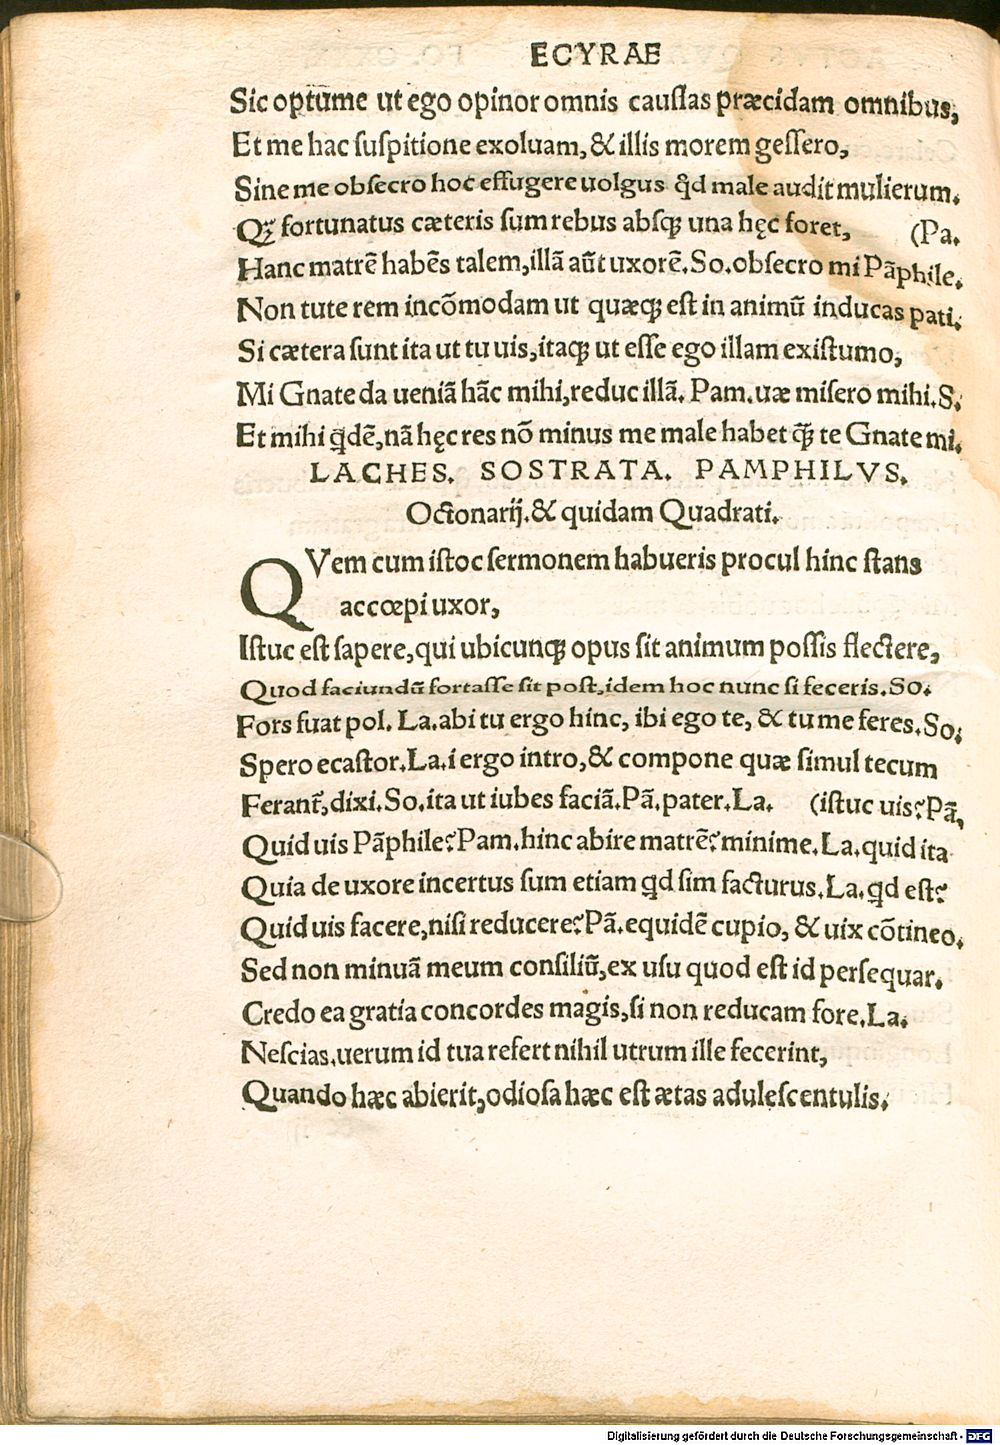 ECYRAE
Sic optume ut ego opinor omnis caussas præcidam omnibus,
Et me hac suspitione exoluam, & illis morem gessero,
Sine me obsecro hoc effugere uolgus qd̃ male audit mulierum.
Qꝫ fortunatus cæteris sum rebus absqꝫ una hęc foret, (Pa.
Hanc matrẽ habẽs talem, illã aũt uxorẽ. So. obsecro mi Pãphile.
Non tute rem incõmodam ut quæqꝫ est in animũ inducas pati.
Si cætera sunt ita ut tu uis, itaqꝫ ut esse ego illam existumo,
Mi Gnate da ueniã hãc mihi, reduc illã. Pam. uæ misero mihi. S.
Et mihi qdẽ, nã hęc res nõ minus me male habet q̃ꝫ te Gnate mi.
LACHES. SOSTRATA. PAMPHILVS.
Octonarij. & quidam Quadrati.
QVem cum istoc sermonem habueris procul hinc stans
accœpi uxor,
Istuc est sapere, qui ubicunqꝫ opus sit animum possis flectere,
Quod faciundũ fortasse sit post, idem hoc nunc si feceris. So.
Fors fuat pol. La. abi tu ergo hinc, ibi ego te, & tu me feres. So.
Spero ecastor. La. i ergo intro, & compone quæ simul tecum
Ferant̃, dixi. So. ita ut iubes faciã. Pã. pater. La. (istuc uis? Pã,
Quid uis Pãphile? Pam. hinc abire matrẽ? minime. La. quid ita
Quia de uxore incertus sum etiam qd sim facturus. La. qd est?
Quid uis facere, nisi reducere? Pã. equidẽ cupio, & uix cõtineo.
Sed non minuã meum consiliũ, ex usu quod est id persequar.
Credo ea gratia concordes magis, si non reducam fore. La.
Nescias, uerum id tua refert nihil utrum ille fecerint,
Quando hæc abierit, odiosa hæc est ætas adulescentulis.
Digitalisierung gefördert durch die Deutsche Forschungsgemeinschaft - DFG